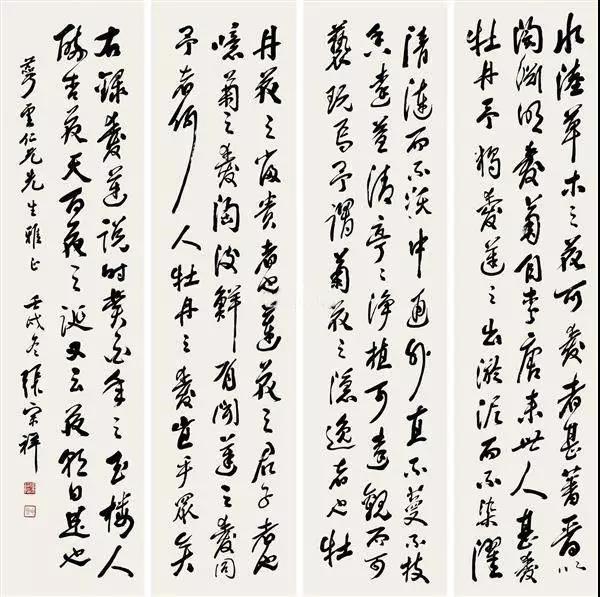 水陸草木之花可愛者甚蕃晉
陶淵明愛菊自李唐來世人甚愛
牡丹予獨愛蓮之出淤泥而不染濯
清漣而不妖中通外直不蔓不枝
香遠益清亭々淨植可遠觀不可
褻玩焉予謂菊花之隱逸者也牡
丹花之富貴者也蓮花之君子者也
噫菊之愛陶後鮮有聞蓮之愛同
予者何人牡丹之愛宜乎眾矣
右錄愛蓮說時黃金之玉樓人
醉杏花天百花之誕又云花朝日是也
萼雲仁兄先生雅正 壬戌冬 張宗祥